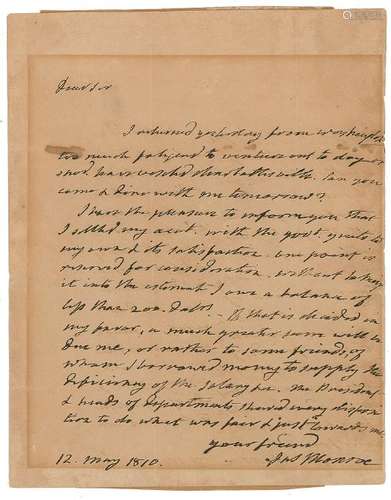 Dear Sir
I returned yesterday from Washington
too much fatigued to venture out to day or
shod. have called
come & dine with me tomorrow?
I have the pleasure to inform you that
I settled my acct. with the govt. quite to
my own & its satisfaction. one point is
reserved for consideration, without taking
it into the estimate I owe a balance of
less than 200. dolrs. If that is decided in
my favor, a much greater sum will be
due me, or rather to some friends, of
whom I borrowed money to supply the
deficiency of the salary &c. The President
& heads of departments shewed every disposi
tion to do what was fair & just towards me.
your friend
Jas Monroe
12. May 1810.